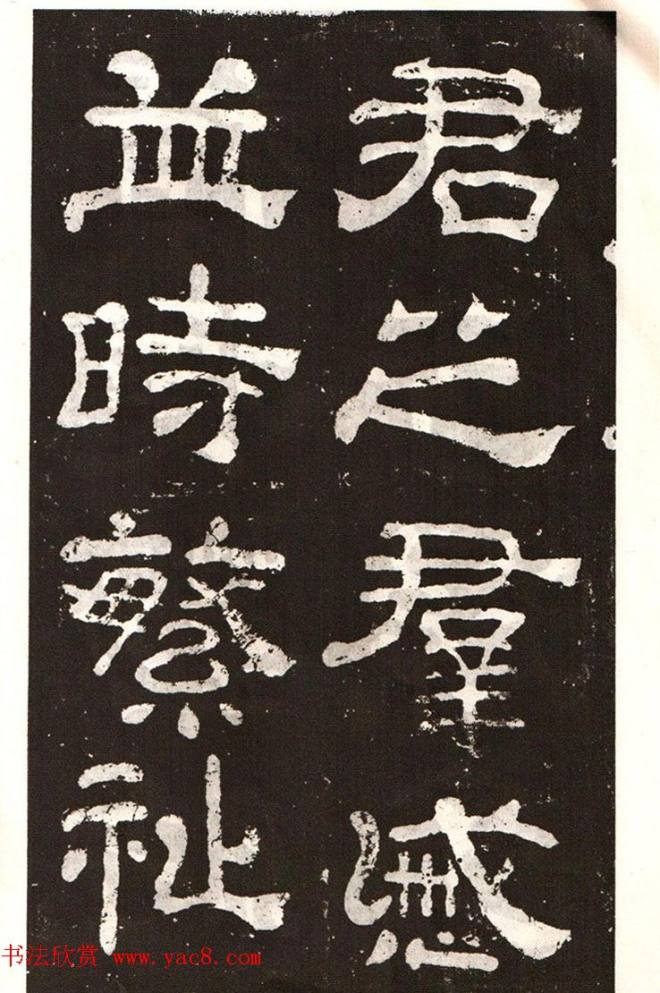 君之羣慼
並時繁祉
书法欣赏 www.yac8.com